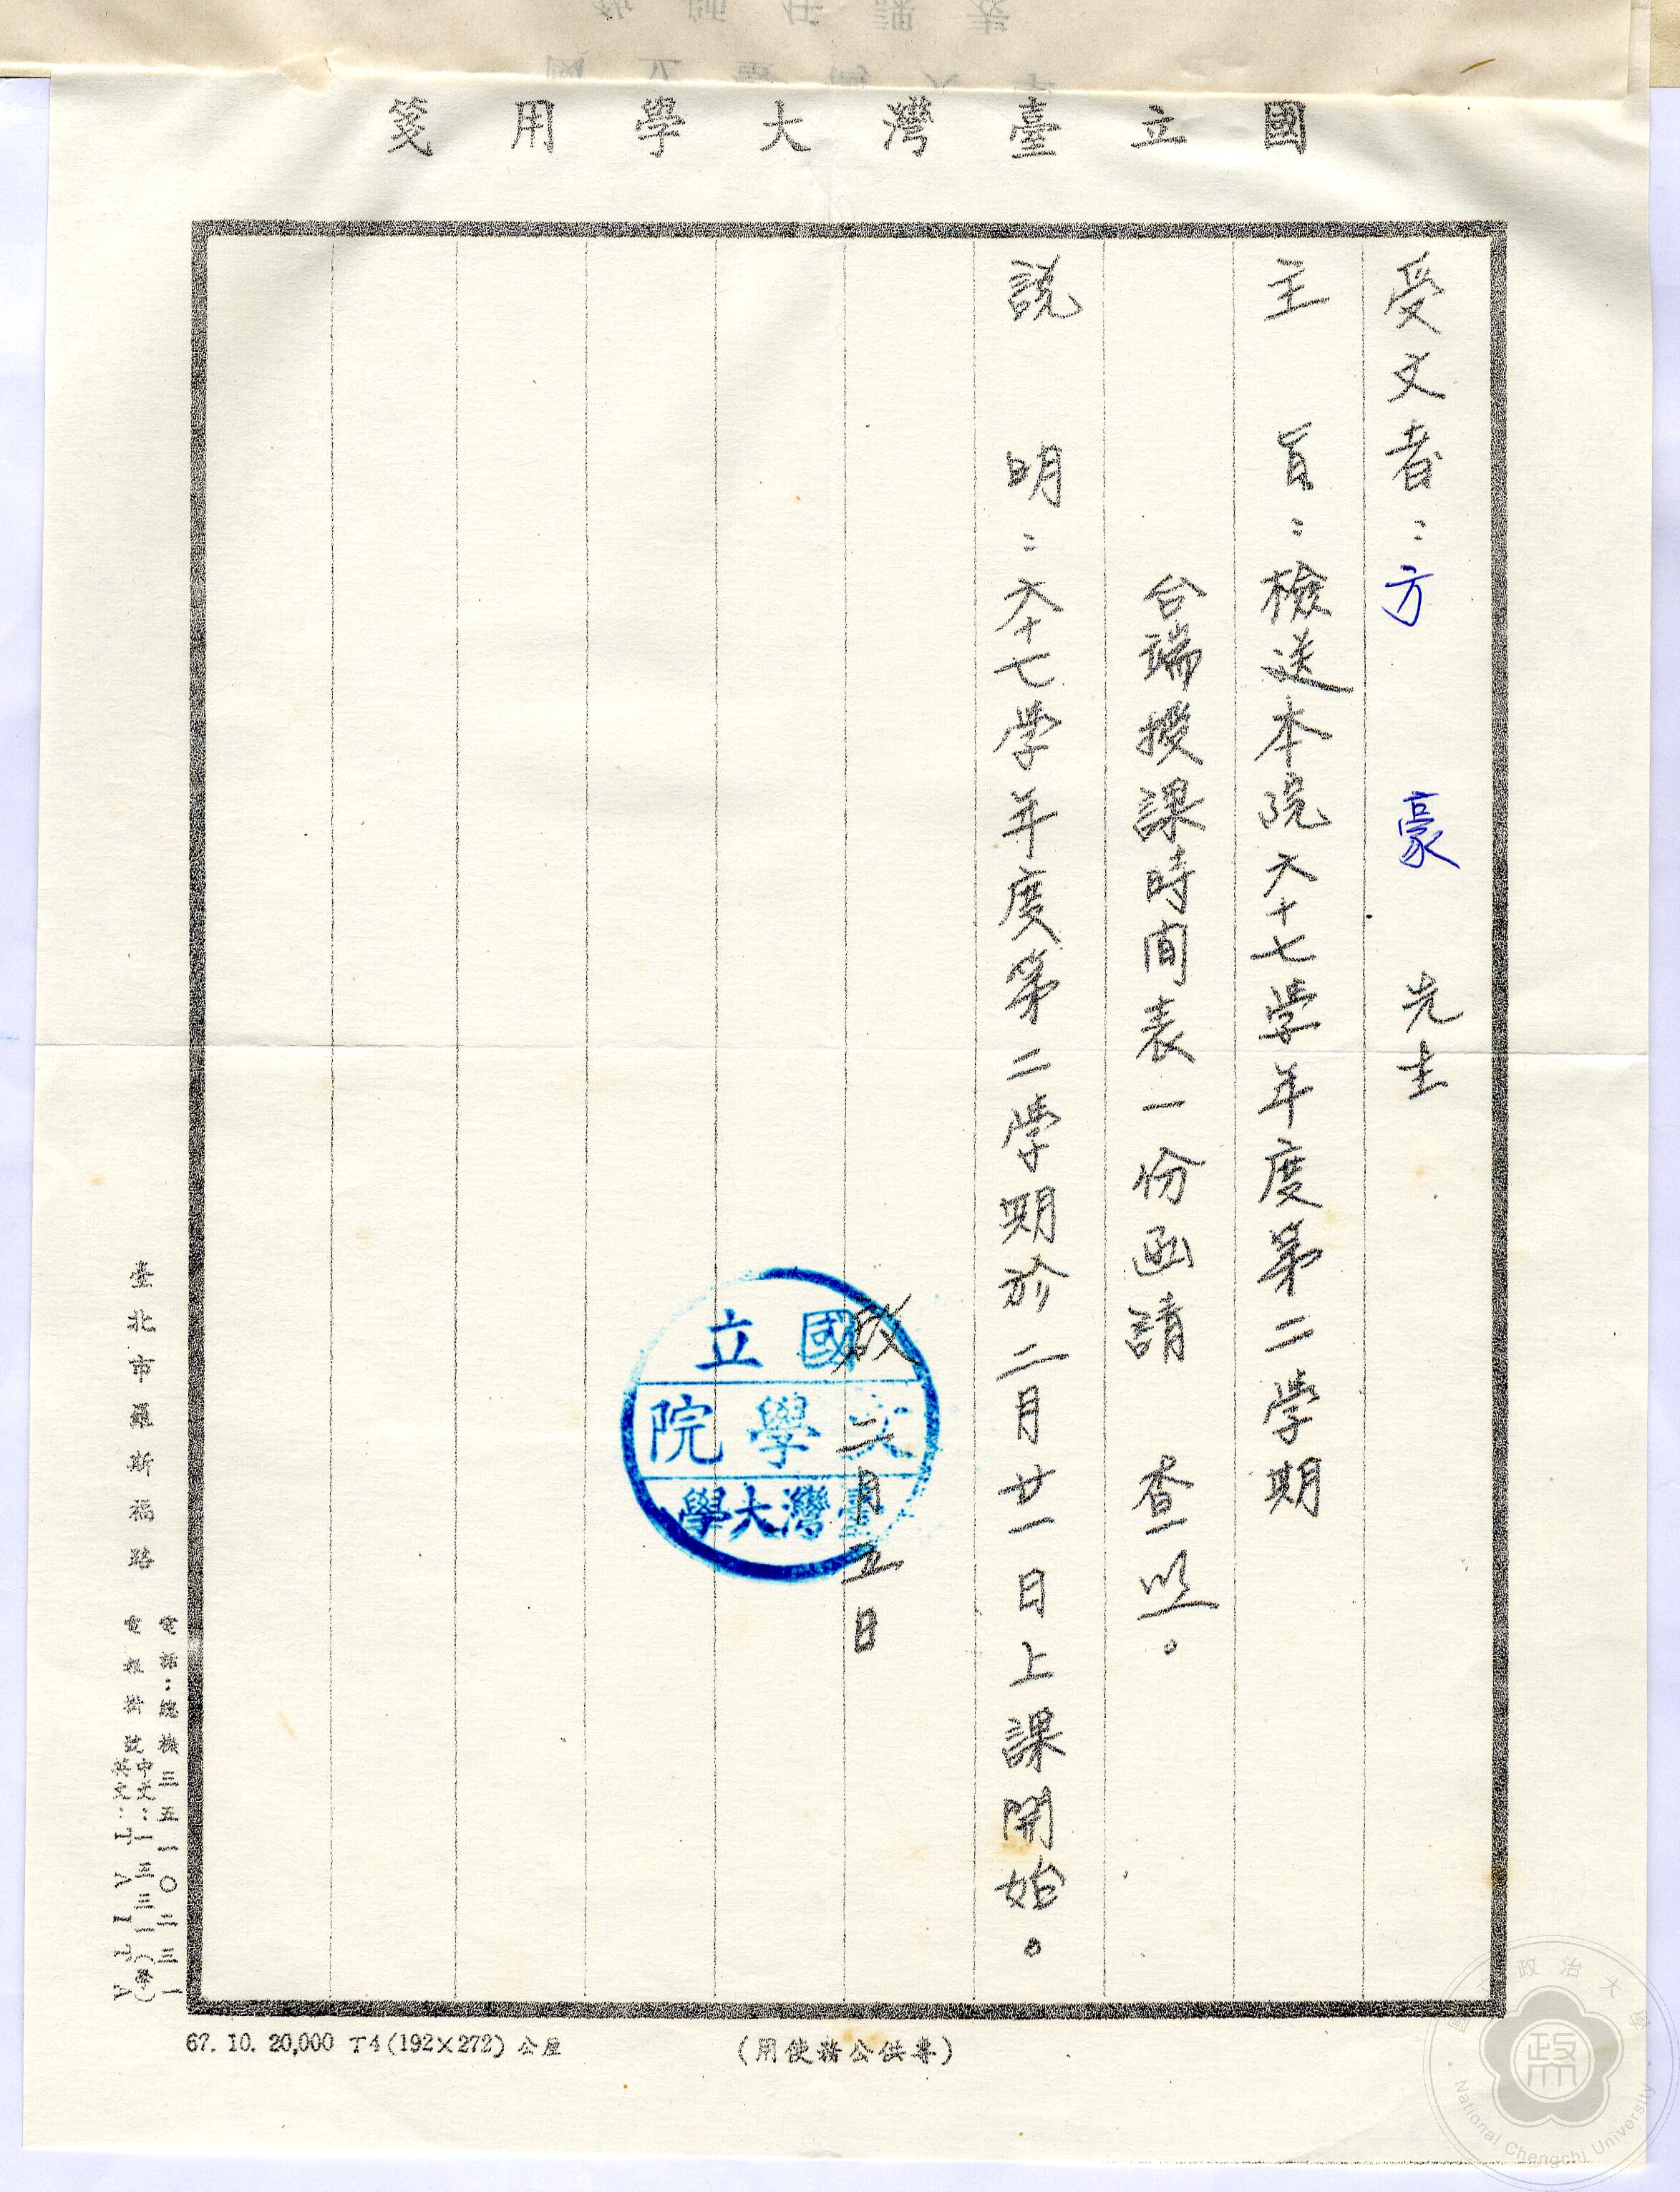 國立臺灣大學用箋
受文者：方豪先生
主旨：檢送本院六十七学年度第二学期
台端授課時間表一份函請 查照。
說明：六十七学年度第二学期於二月廿一日上課開始。
啟 二月五日
國立
文學院
臺灣大學
臺北市羅斯福路
電話：總機三五一〇二三一
電報掛號
中文：一三三一(學)
67. 10. 20,000 丁4(192×272) 公屋
(專供公務使用)
政治大學
National Chengchi University